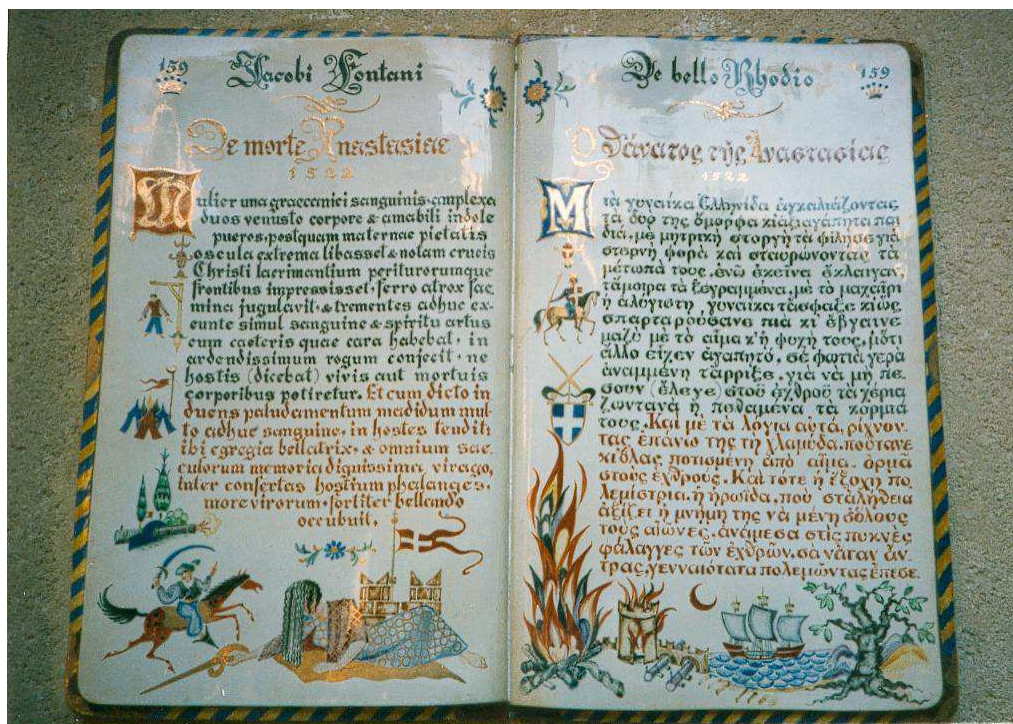 159
Jacobi Fontani
De morte Anastasiae
1522
Mulier una graecanici sanguinis complexa
duos venusto corpore & amabili indole
pueros, postquam maternae pietatis
oscula extrema libasset & notam crucis
Christi lacrimantium periturorumque
frontibus impressisset, ferro atrox fae
mina jugulavit, & trementes adhuc ex-
eunte simul sanguine & spiritu artus
cum caeteris quae cara habebat, in
ardendissimum rogum confecit, ne
hostis (dicebat) vivis aut mortuis
corporibus potiretur. Et cum dicto in
duens paludamentum madidum mul-
to adhuc sanguine, in hostes tendit;
ibi egregia bellatrix, & omnium sae
culorum memoria dignissima virago,
inter confertas hostium phalanges,
more virorum, fortiter bellando
occubuit.
De bello Rhodio
159
Ὁ θάνατος τῆς Ἀναστασίας
1522
Μιὰ γυναίκα Ἑλληνίδα ἀγκαλιάζοντας
τὰ δυό της ὄμορφα κι ἀξιαγάπητα παι
διά, μὲ μητρικὴ στοργὴ τὰ φίλησε γιὰ
στερνὴ φορὰ καὶ σταυρώνοντας τὰ
μέτωπά τους, ἐνῶ ἐκεῖνα ἔκλαιγαν,
τἄμοιρα τὰ ξεγραμμένα, μὲ τὸ μαχαίρι
ἡ ἀλόγιστη γυναίκα τἄσφαξε κι ὡς
σπαρταρούσανε πιὰ κι ἔβγαινε
μαζὺ μὲ τὸ αἷμα κ' ἡ ψυχή τους, μ' ὅτι
ἄλλο εἶχεν ἀγαπητό, σὲ φωτιὰ γερὰ
ἀναμμένη τἄρριξε, γιὰ νὰ μὴ πέ
σουν (ἔλεγε) στοῦ ἐχθροῦ τὰ χέρια
ζωντανὰ ἢ πεθαμένα τὰ κορμιά
τους. Καὶ μὲ τὰ λόγια αὐτά, ρίχνον
τας ἐπάνω της τὴ χλαμύδα, ποὔτανε
κι ὅλας ποτισμένη ἀπὸ αἷμα, ὁρμᾶ
στοὺς ἐχθρούς. Καὶ τότε ἡ ἔξοχη πο
λεμίστρια, ἡ ἡρωίδα, ποὺ στ' ἀλήθεια
ἀξίζει ἡ μνήμη της νὰ μένη σ' ὅλους
τοὺς αἰῶνες, ἀνάμεσα στὶς πυκνὲς
φάλαγγες τῶν ἐχθρῶν, σὰ νἆταν ἄν
τρας, γενναιότατα πολεμώντας ἔπεσε.